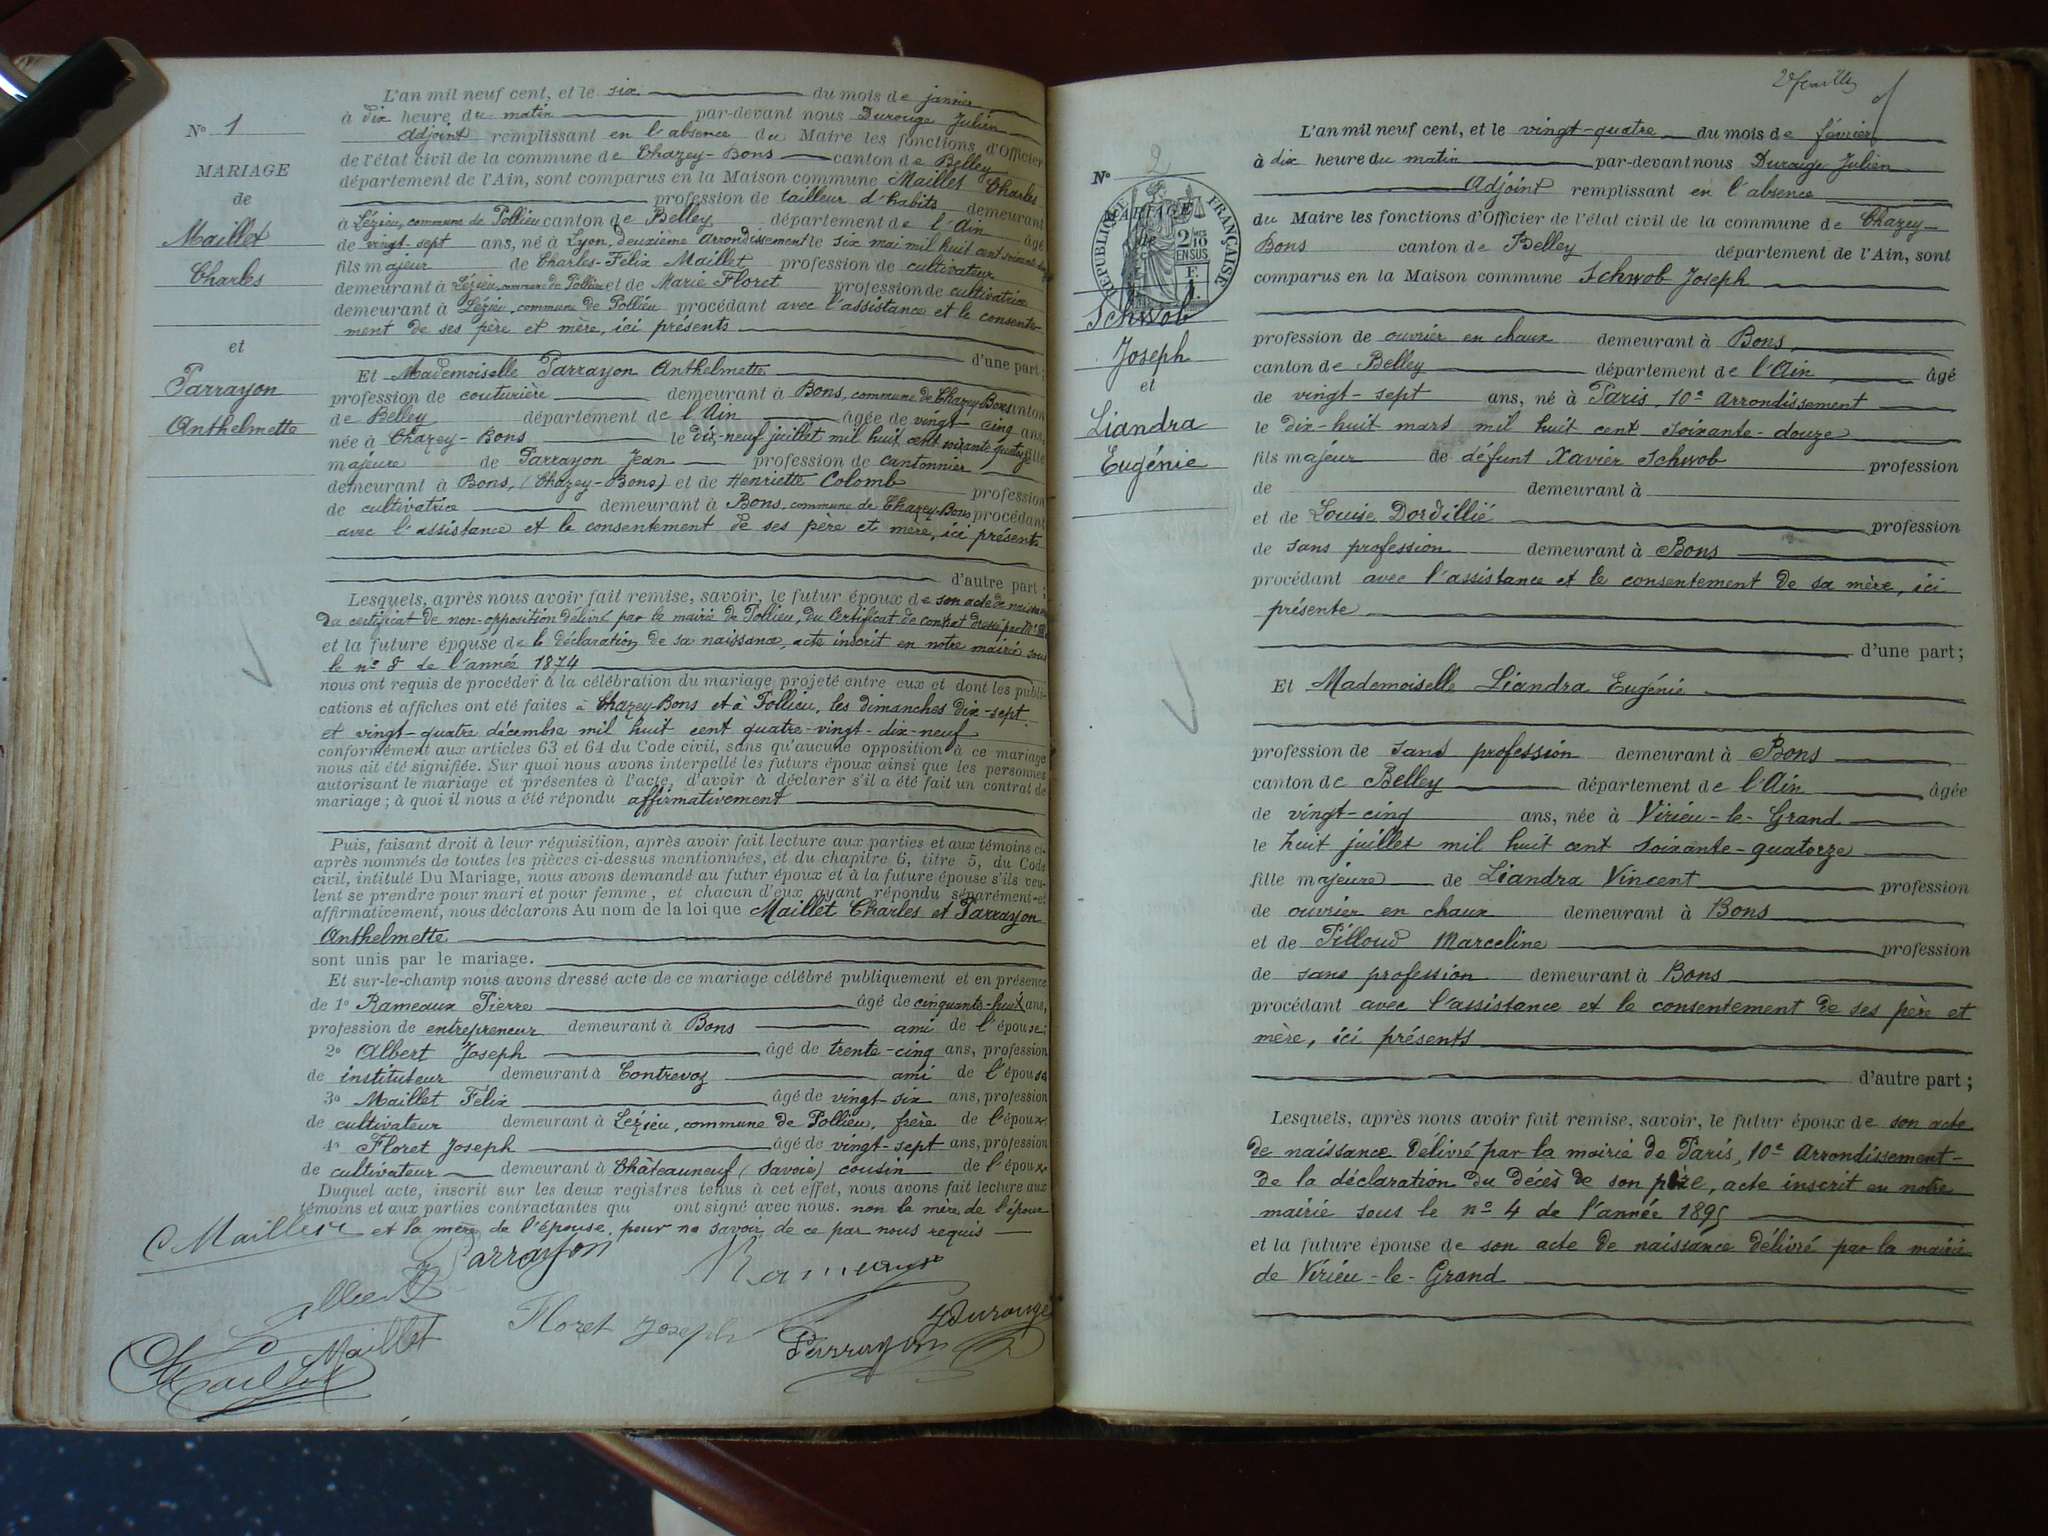 L'an mil neuf cent, et le six du mois de janvier
à dix heure du matin par-devant nous Durouge Julien
Adjoint remplissant en l'absence du Maire les fonctions d'Officier
de l'état civil de la commune de Chazey-Bons canton de Belley
département de l'Ain, sont comparus en la Maison commune Maillet Charles
profession de tailleur d'habits demeurant
à Lézieu, commune de Pollieu canton de Belley département de l'Ain âgé
de vingt-sept ans, né à Lyon, deuxième arrondissement le six mai mil huit cent soixante
fils majeur de Charles-Félix Maillet profession de cultivateur
demeurant à Lézieu, commune de Pollieu et de Marie Floret profession de cultivatrice
demeurant à Lézieu, commune de Pollieu procédant avec l'assistance et le consente-
ment de ses père et mère, ici présents
d'une part;
Et Mademoiselle Parrayon Anthelmette
profession de couturière demeurant à Bons, commune de Chazey-Bons canton
de Belley département de l'Ain âgée de vingt-cinq ans,
née à Chazey-Bons le dix-neuf juillet mil huit cent soixante quatorze fille
majeure de Parrayon Jean profession de cantonnier
demeurant à Bons, (Chazey-Bons) et de Henriette Colomb profession
de cultivatrice demeurant à Bons, commune de Chazey-Bons procédant
avec l'assistance et le consentement de ses père et mère, ici présents
d'autre part;
Lesquels, après nous avoir fait remise, savoir, le futur époux de son acte de naissance
du certificat de non-opposition délivré par la mairie de Pollieu, du Certificat de contrat dressé par
et la future épouse de la déclaration de sa naissance, acte inscrit en notre mairie sous
le nº 8 de l'année 1874
nous ont requis de procéder à la célébration du mariage projeté entre eux et dont les publi-
cations et affiches ont été faites à Chazey-Bons et à Pollieu, les dimanches dix-sept
et vingt-quatre décembre mil huit cent quatre-vingt-dix-neuf
conformément aux articles 63 et 64 du Code civil, sans qu'aucune opposition à ce mariage
nous ait été signifiée. Sur quoi nous avons interpellé les futurs époux ainsi que les personnes
autorisant le mariage et présentes à l'acte, d'avoir à déclarer s'il a été fait un contrat de
mariage; à quoi il nous a été répondu affirmativement
Puis, faisant droit à leur réquisition, après avoir fait lecture aux parties et aux témoins ci-
après nommés de toutes les pièces ci-dessus mentionnées, et du chapitre 6, titre 5, du Code
civil, intitulé Du Mariage, nous avons demandé au futur époux et à la future épouse s'ils veu-
lent se prendre pour mari et pour femme, et chacun d'eux ayant répondu séparément et
affirmativement, nous déclarons Au nom de la loi que Maillet Charles et Parrayon
Anthelmette
sont unis par le mariage.
Et sur-le-champ nous avons dressé acte de ce mariage célébré publiquement et en présence
de 1º Rameaux Pierre âgé de cinquante-huit ans,
profession de entrepreneur demeurant à Bons ami de l'épouse;
2º Albert Joseph âgé de trente-cinq ans, profession
de instituteur demeurant à Contrevoz ami de l'épouse
3º Maillet Félix âgé de vingt-six ans, profession
de cultivateur demeurant à Lézieu, commune de Pollieu, frère de l'époux
4º Floret Joseph âgé de vingt-sept ans, profession
de cultivateur demeurant à Châteauneuf (Savoie) cousin de l'époux
Duquel acte, inscrit sur les deux registres tenus à cet effet, nous avons fait lecture aux
témoins et aux parties contractantes qui ont signé avec nous. non la mère de l'époux
et la mère de l'épouse, pour ne savoir, de ce par nous requis
C Maillet
Parrayon
Rameaux
Albert
Floret Joseph
JDurouge
Maillet
Maillet
Parrayon
Nº 1
MARIAGE
de
Maillet
Charles
et
Parrayon
Anthelmette
L'an mil neuf cent, et le vingt-quatre du mois de février
à dix heure du matin par-devant nous Durouge Julien
Adjoint remplissant en l'absence
du Maire les fonctions d'Officier de l'état civil de la commune de Chazey-
Bons canton de Belley département de l'Ain, sont
comparus en la Maison commune Schwob Joseph
profession de ouvrier en chaux demeurant à Bons,
canton de Belley département de l'Ain âgé
de vingt-sept ans, né à Paris, 10e Arrondissement
le dix-huit mars mil huit cent soixante-douze
fils majeur de défunt Xavier Schwob profession
de demeurant à
et de Louise Dordillié profession
de sans profession demeurant à Bons
procédant avec l'assistance et le consentement de sa mère, ici
présente
d'une part;
Et Mademoiselle Liandra Eugénie
profession de sans profession demeurant à Bons
canton de Belley département de l'Ain âgée
de vingt-cinq ans, née à Virieu-le-Grand
le huit juillet mil huit cent soixante-quatorze
fille majeure de Liandra Vincent profession
de ouvrier en chaux demeurant à Bons
et de Pilloud Marceline profession
de sans profession demeurant à Bons
procédant avec l'assistance et le consentement de ses père et
mère, ici présents
d'autre part;
Lesquels, après nous avoir fait remise, savoir, le futur époux de son acte
de naissance délivré par la mairie de Paris, 10e Arrondissement-
de la déclaration du décès de son père, acte inscrit en notre
mairie sous le nº 4 de l'année 1895
et la future épouse de son acte de naissance délivré par la mairie
de Virieu-le-Grand
Nº 2
MARIAGE
de
RÉPUBLIQUE FRANÇAISE
2/10 EN SUS
Schwob
Joseph
et
Liandra
Eugénie